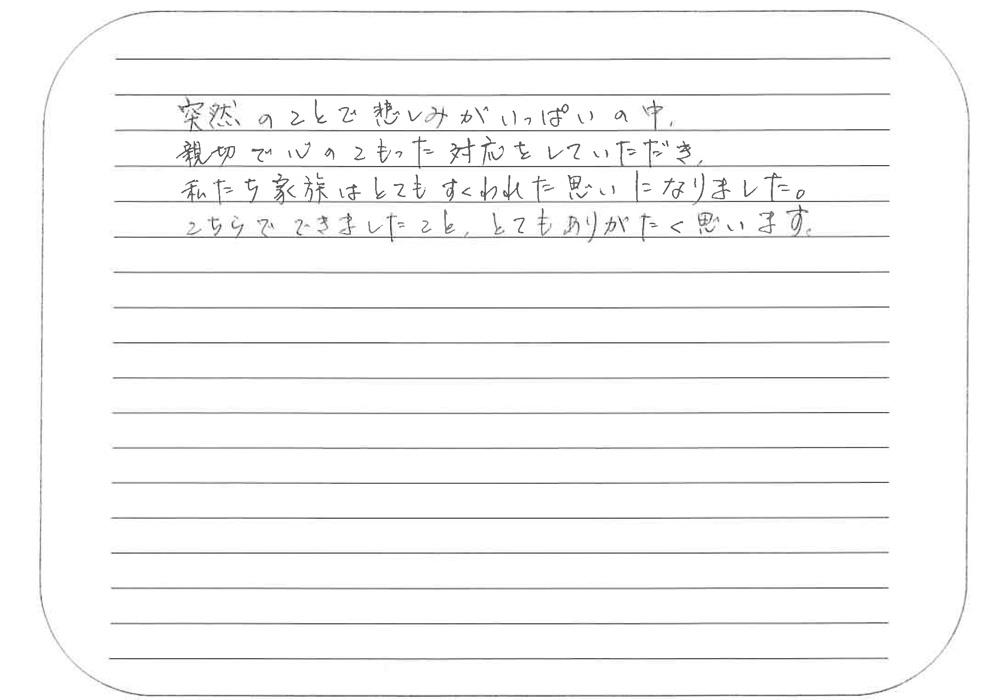 突然のことで悲しみがいっぱいの中、
親切で心のこもった対応をしていただき、
私たち家族はとてもすくわれた思いになりました。
こちらでできましたこと、とてもありがたく思います。